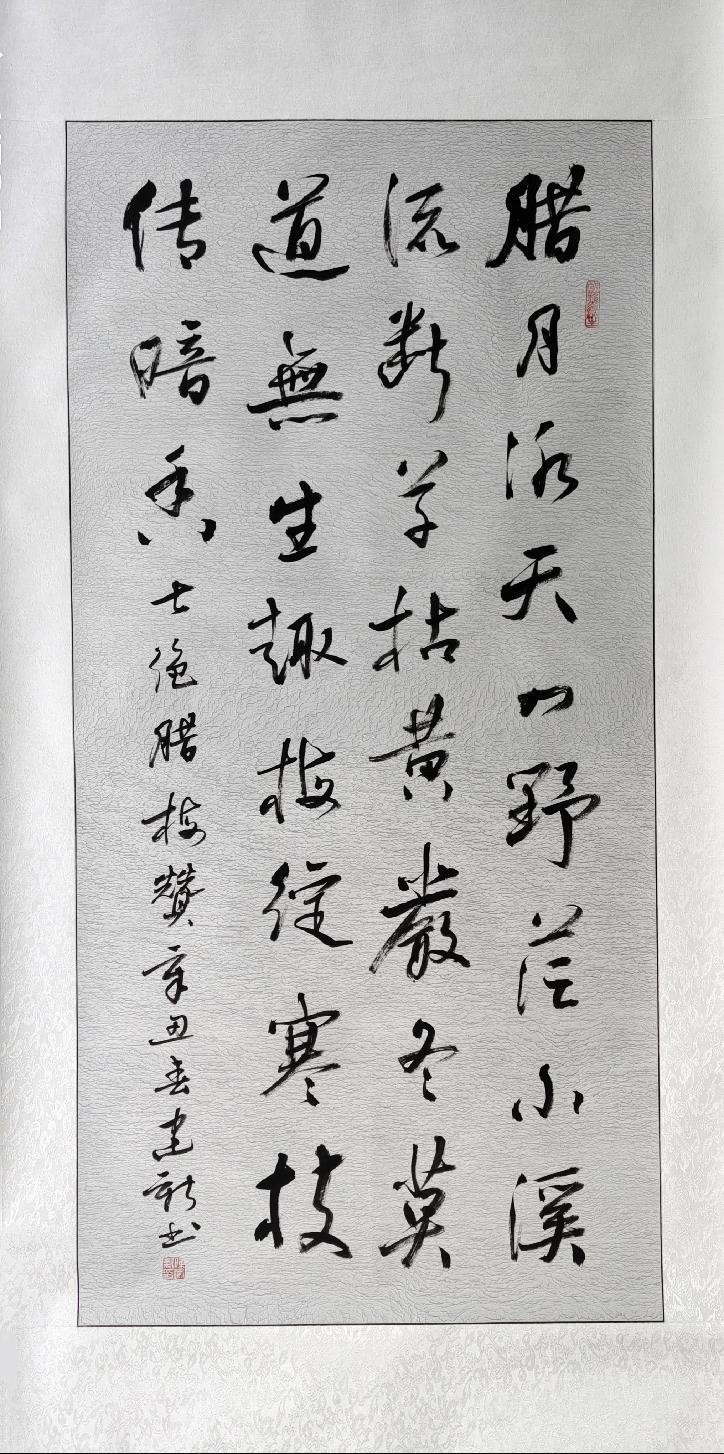 腊月冰天四野茫小溪
流断草枯黄嚴冬莫
道無生趣梅绽寒枝
传暗香七绝腊梅赞辛丑春建新书